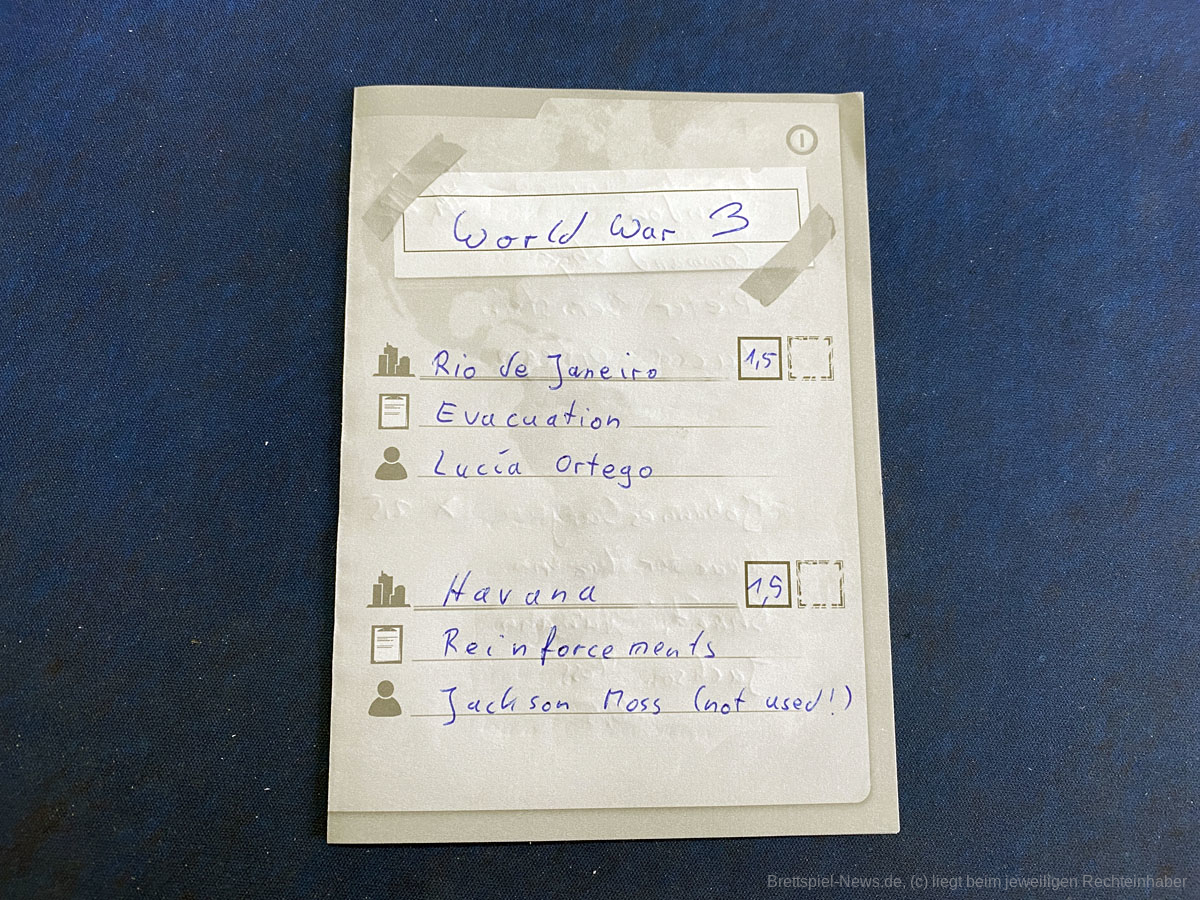 World War 3
Rio de Janeiro 1,5
Evacuation
Lucía Ortego
Havana 1,5
Reinforcements
Jackson Moss (not used!)
Brettspiel-News.de, (c) liegt beim jeweiligen Rechteinhaber